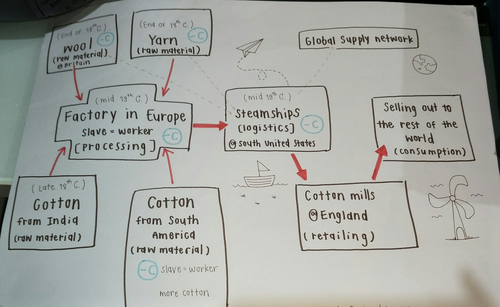 (End of 18th C.)
Wool -C
(raw material)
@Britain
(End of 18th C.)
Yarn -C
(raw material)
Global Supply network
(mid 19th C.)
Factory in Europe
slave = worker -C
[processing]
(mid 19th C.)
Steamships
[logistics] -C
@south United States
Selling out to
the rest of the
world
(consumption)
(Late 18th C.)
Cotton
from India
(raw material)
Cotton
from South
America
(raw material)
-C slave = worker
more cotton
Cotton mills
@England
(retailing)